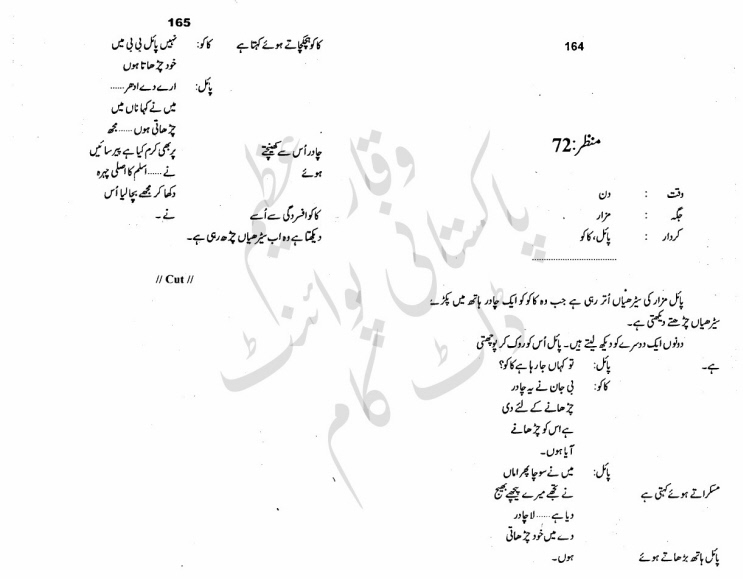 164
منظر:72
وقت : دن
جگہ : مزار
کردار : پائل، کاکو
پائل مزار کی سیڑھیاں اُتر رہی ہے جب وہ کاکو کو ایک چادر ہاتھ میں پکڑے
سیڑھیاں چڑھتے دیکھتی ہے۔
دونوں ایک دوسرے کو دیکھ لیتے ہیں۔ پائل اُس کو روک کر پوچھتی
ہے۔ پائل: تو کہاں جا رہا ہے کاکو؟
کاکو: بی جان نے یہ چادر
چڑھانے کے لئے دی
ہے اس کو چڑھانے
آیا ہوں۔
پائل: میں نے سوچا پھر اماں
مسکراتے ہوئے کہتی ہے نے تجھے میرے پیچھے بھیج
دیا ہے ...... لا چادر
دے میں خود چڑھاتی
پائل ہاتھ بڑھاتے ہوئے ہوں۔
165
کاکو ہچکچاتے ہوئے کہتا ہے کاکو: نہیں پائل بی بی میں
خود چڑھاتا ہوں
پائل: ارے دے ادھر ......
میں نے کہا ناں میں
چڑھاتی ہوں ...... مجھ
چادر اُس سے کھینچتے پر بھی کرم کیا ہے پیر سائیں
ہوئے نے ...... اسلم کا اصلی چہرہ
دکھا کر مجھے بچا لیا اُس
کاکو افسردگی سے اُسے نے۔
دیکھتا ہے وہ اب سیڑھیاں چڑھ رہی ہے۔
// Cut //
وقار عظیم
پاکستانی پوائنٹ
ڈاٹ کام